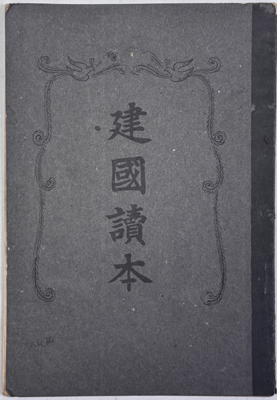 建國讀本